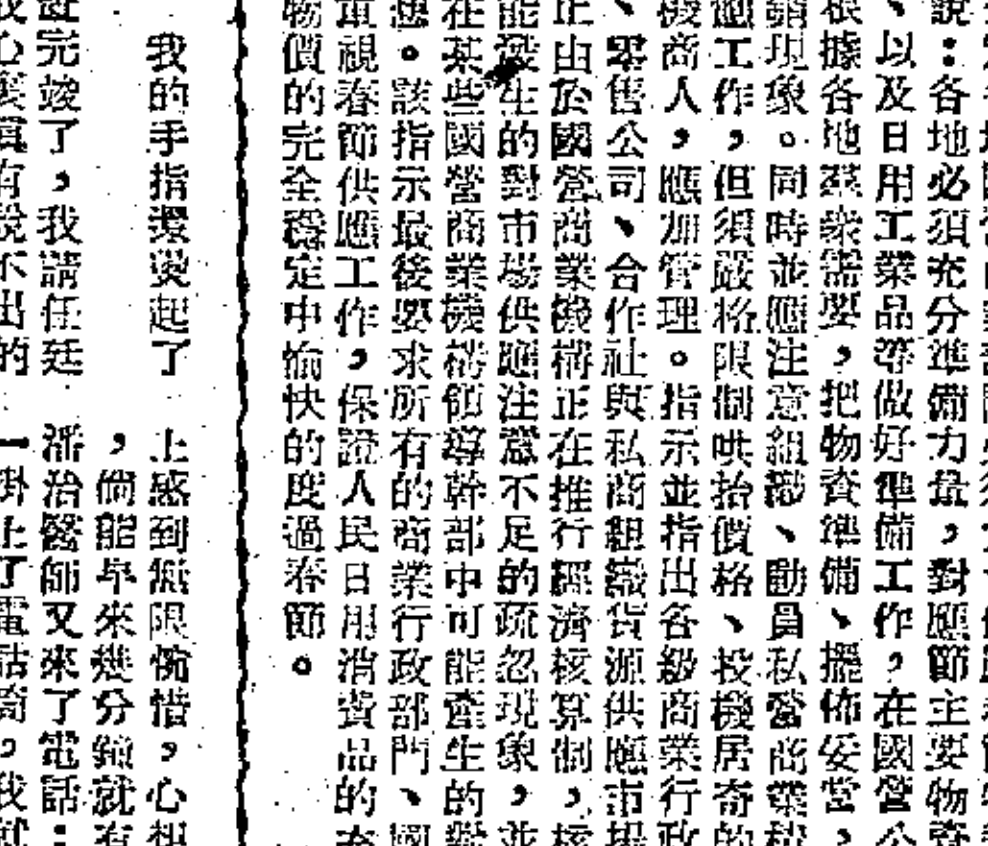 說：各地必須充分準備力量，對應節主要物資
、以及日用工業品等做好準備工作，在國營公
根據各地羣衆需要，把物資準備、擺佈妥當，
銷現象。同時並應注意組織、動員私營商業積
工作，但須嚴格限制哄抬價格、投機居奇的
機商人，應加管理。指示並指出各級商業行政
、零售公司、合作社與私商組織貨源供應市場
正由於國營商業機構正在推行經濟核算制，核
能發生的對市場供應注意不足的疏忽現象，並
在某些國營商業機構領導幹部中可能產生的
。該指示最後要求所有的商業行政部門、國
重視春節供應工作，保證人民日用消費品的充
物價的完全穩定中愉快的度過春節。
我的手指還燙起了
上感到無限惋惜，心想
，倘能早來幾分鐘就有
完竣了，我請任廷
潘治醫師又來了電話：
心裏真有說不出的
一掛上了電話筒，我就